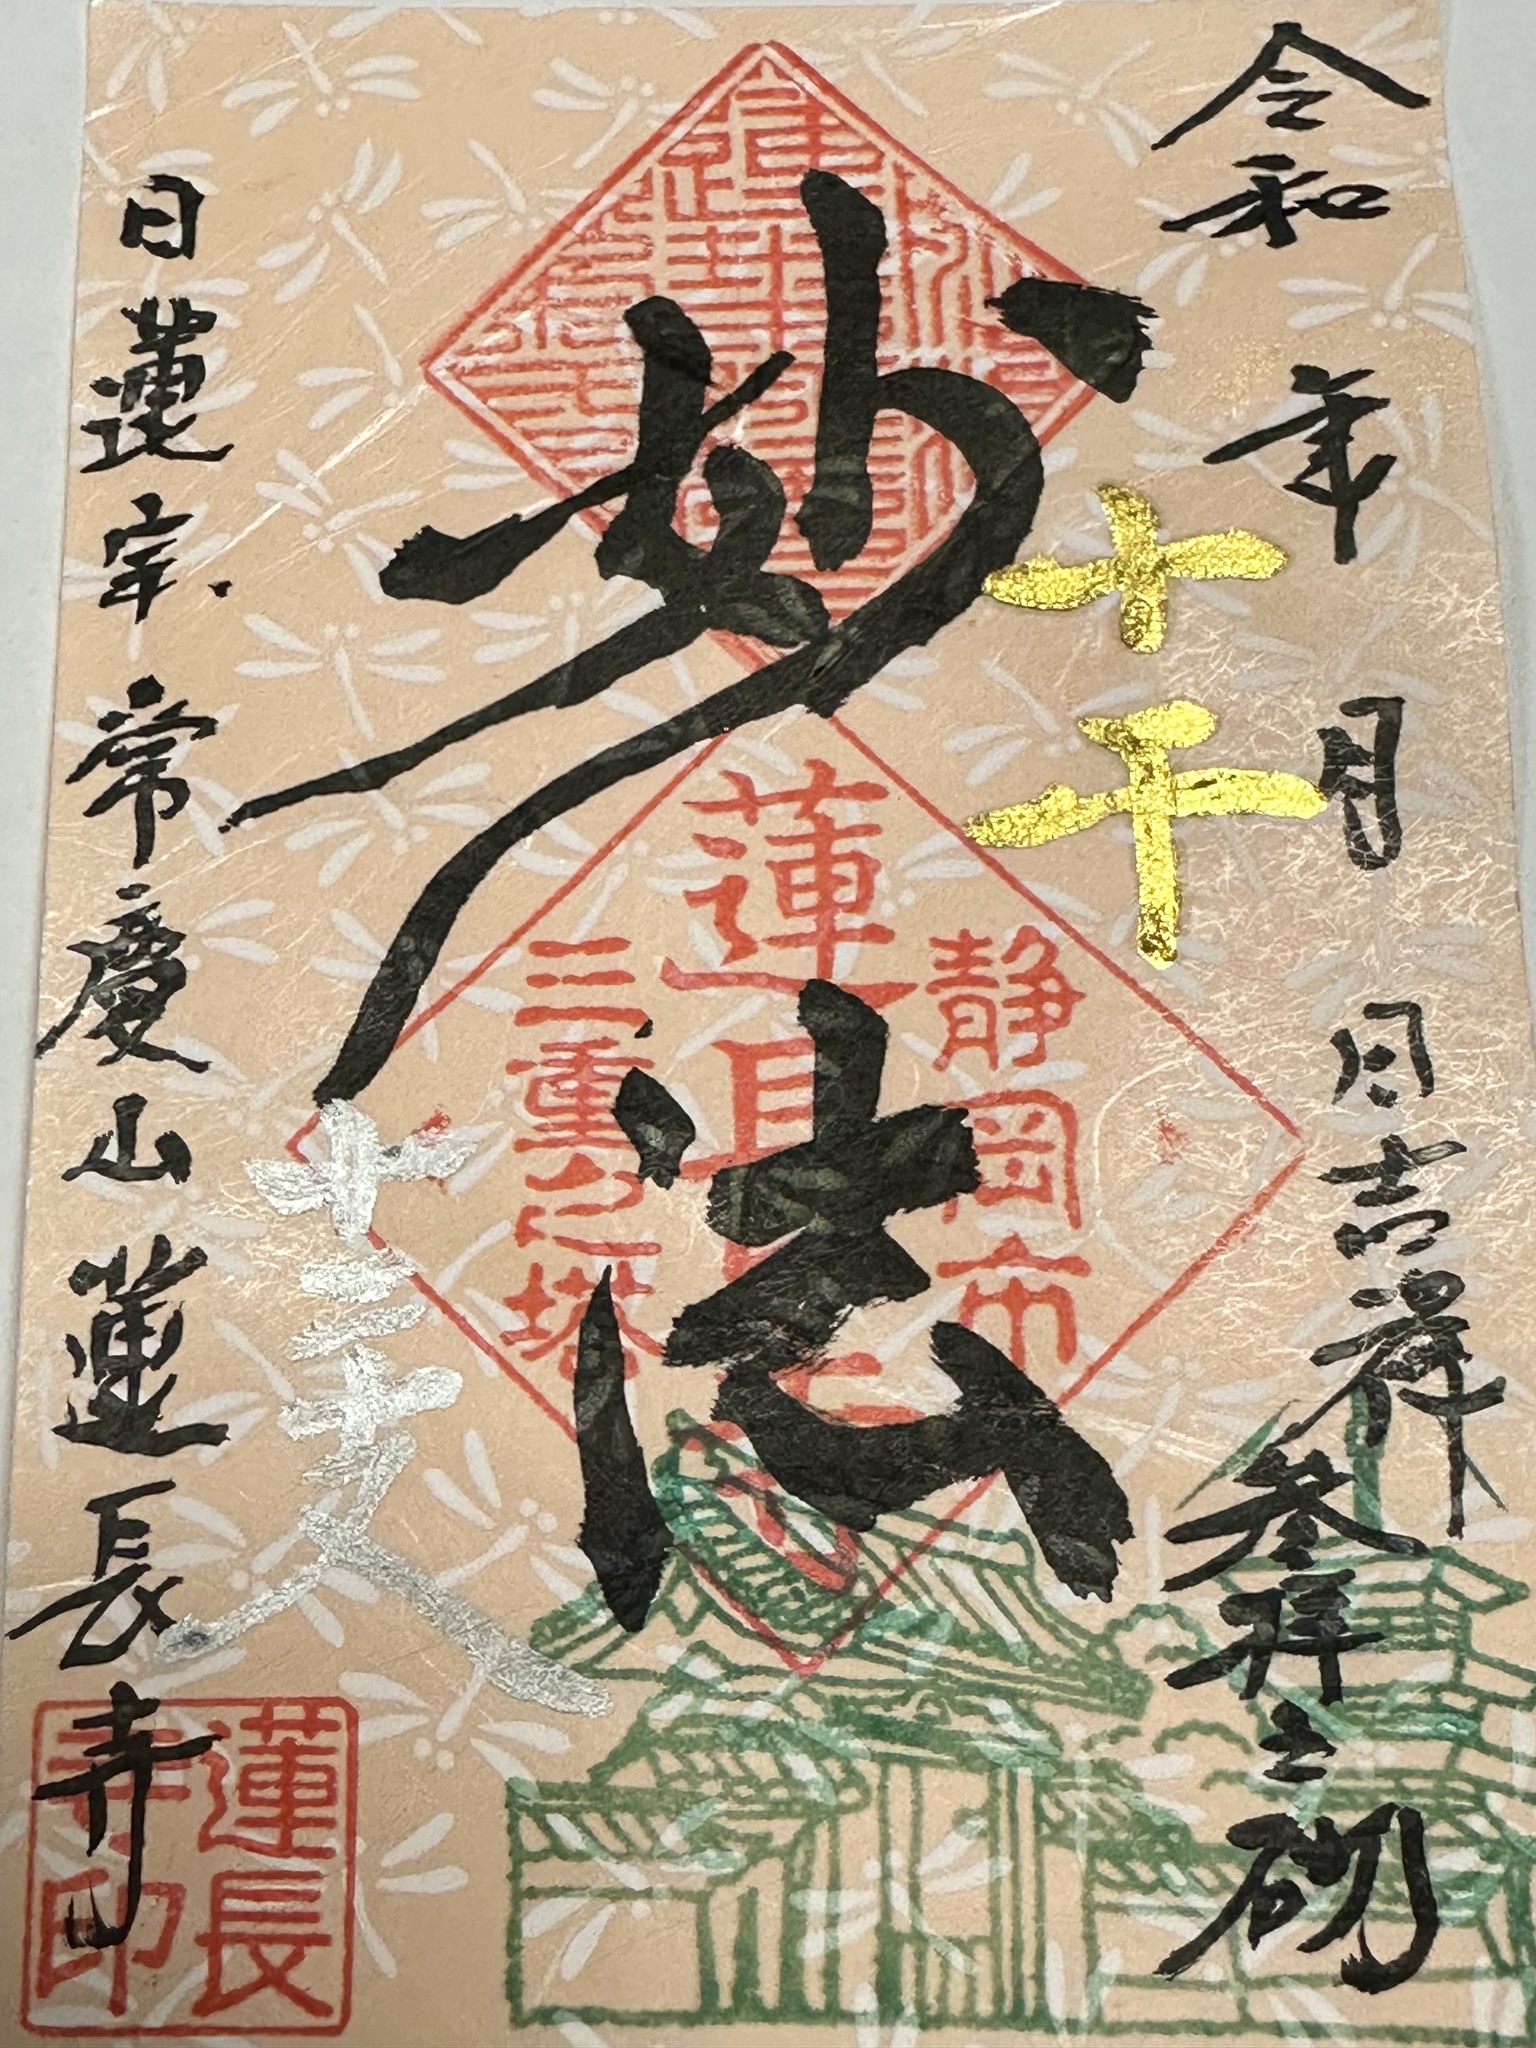 令和 年 月 日吉祥参拝之砌
十干
妙法
十二支
日蓮宗 常慶山 蓮長寺
静岡市
蓮長寺
三重之塔
蓮長寺印